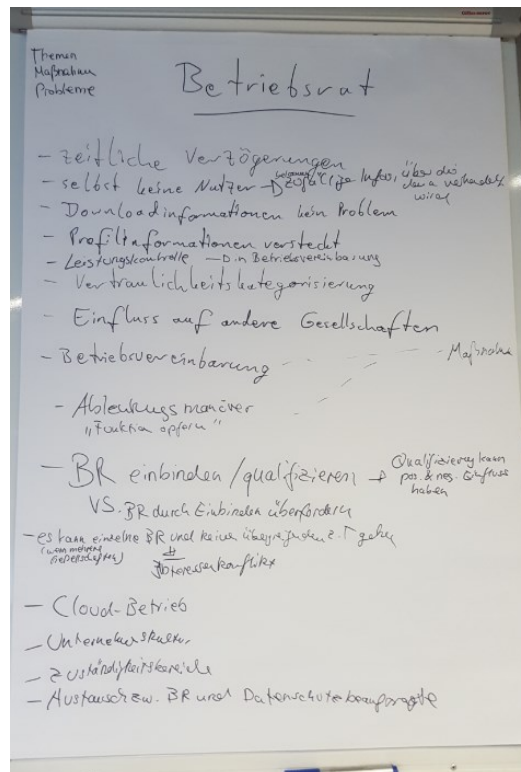 Themen
Maßnahmen
Probleme
Betriebsrat
- zeitliche Verzögerungen
- selbst keine Nutzer → zufällige Infos, über die
dann verhandelt
wird
- Downloadinformationen kein Problem
- Profilinformationen versteckt
- Leistungskontrolle → in Betriebsvereinbarung
- Vertraulichkeitskategorisierung
- Einfluss auf andere Gesellschaften
- Betriebsvereinbarung - Maßnahme
- Ablenkungsmanöver
"Funktion opfern"
- BR einbinden / qualifizieren → Qualifizierung kann
pos. & neg. Einfluss
haben
VS. BR durch Einbinden überfordern
- es kann einzelne BR und keinen übergreifenden z.T. geben
(wenn mehrere
Gesellschaften)
Interessenkonflikt
- Cloud-Betrieb
- Unternehmenskultur
- Zuständigkeitsbereiche
- Austausch zw. BR und Datenschutzbeauftragte